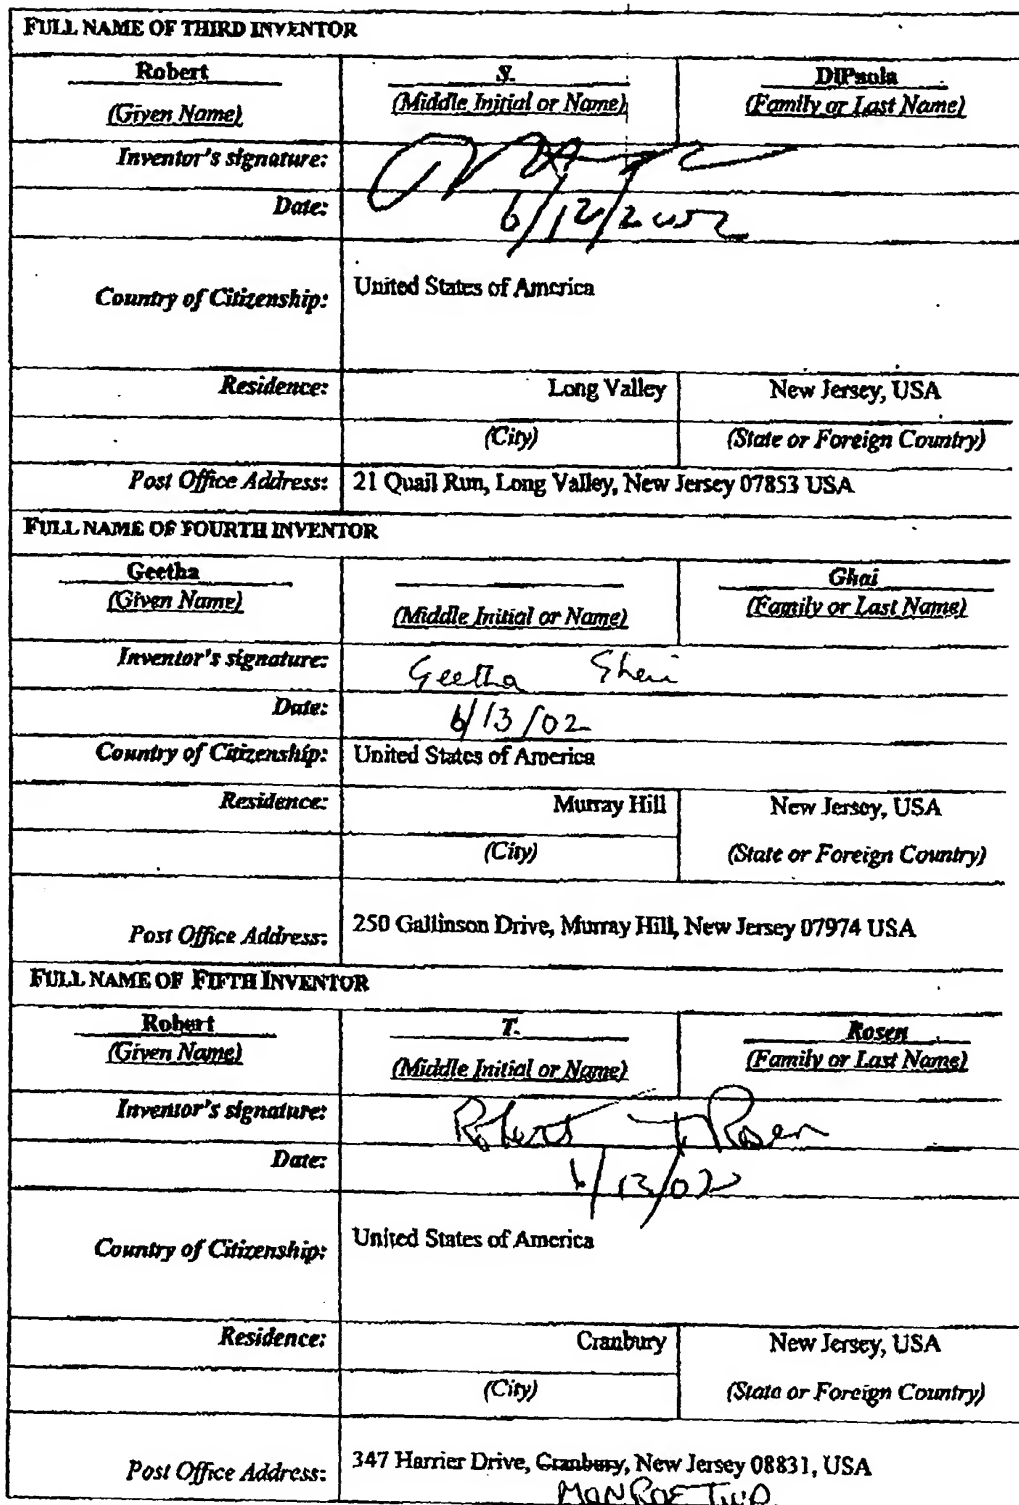 FULL NAME OF THIRD INVENTOR
Robert S. DiPaola
(Given Name) (Middle Initial or Name) (Family or Last Name)
Inventor's signature:
Date: 6/12/2002
Country of Citizenship: United States of America
Residence: Long Valley New Jersey, USA
(City) (State or Foreign Country)
Post Office Address: 21 Quail Run, Long Valley, New Jersey 07853 USA
FULL NAME OF FOURTH INVENTOR
Geetha Ghai
(Given Name) (Middle Initial or Name) (Family or Last Name)
Inventor's signature: Geetha Ghai
Date: 6/13/02
Country of Citizenship: United States of America
Residence: Murray Hill New Jersey, USA
(City) (State or Foreign Country)
Post Office Address: 250 Gallinson Drive, Murray Hill, New Jersey 07974 USA
FULL NAME OF FIFTH INVENTOR
Robert T. Rosen
(Given Name) (Middle Initial or Name) (Family or Last Name)
Inventor's signature: Robert T. Rosen
Date: 6/13/02
Country of Citizenship: United States of America
Residence: Cranbury New Jersey, USA
(City) (State or Foreign Country)
Post Office Address: 347 Harrier Drive, Cranbury, New Jersey 08831, USA
MONROE TWP